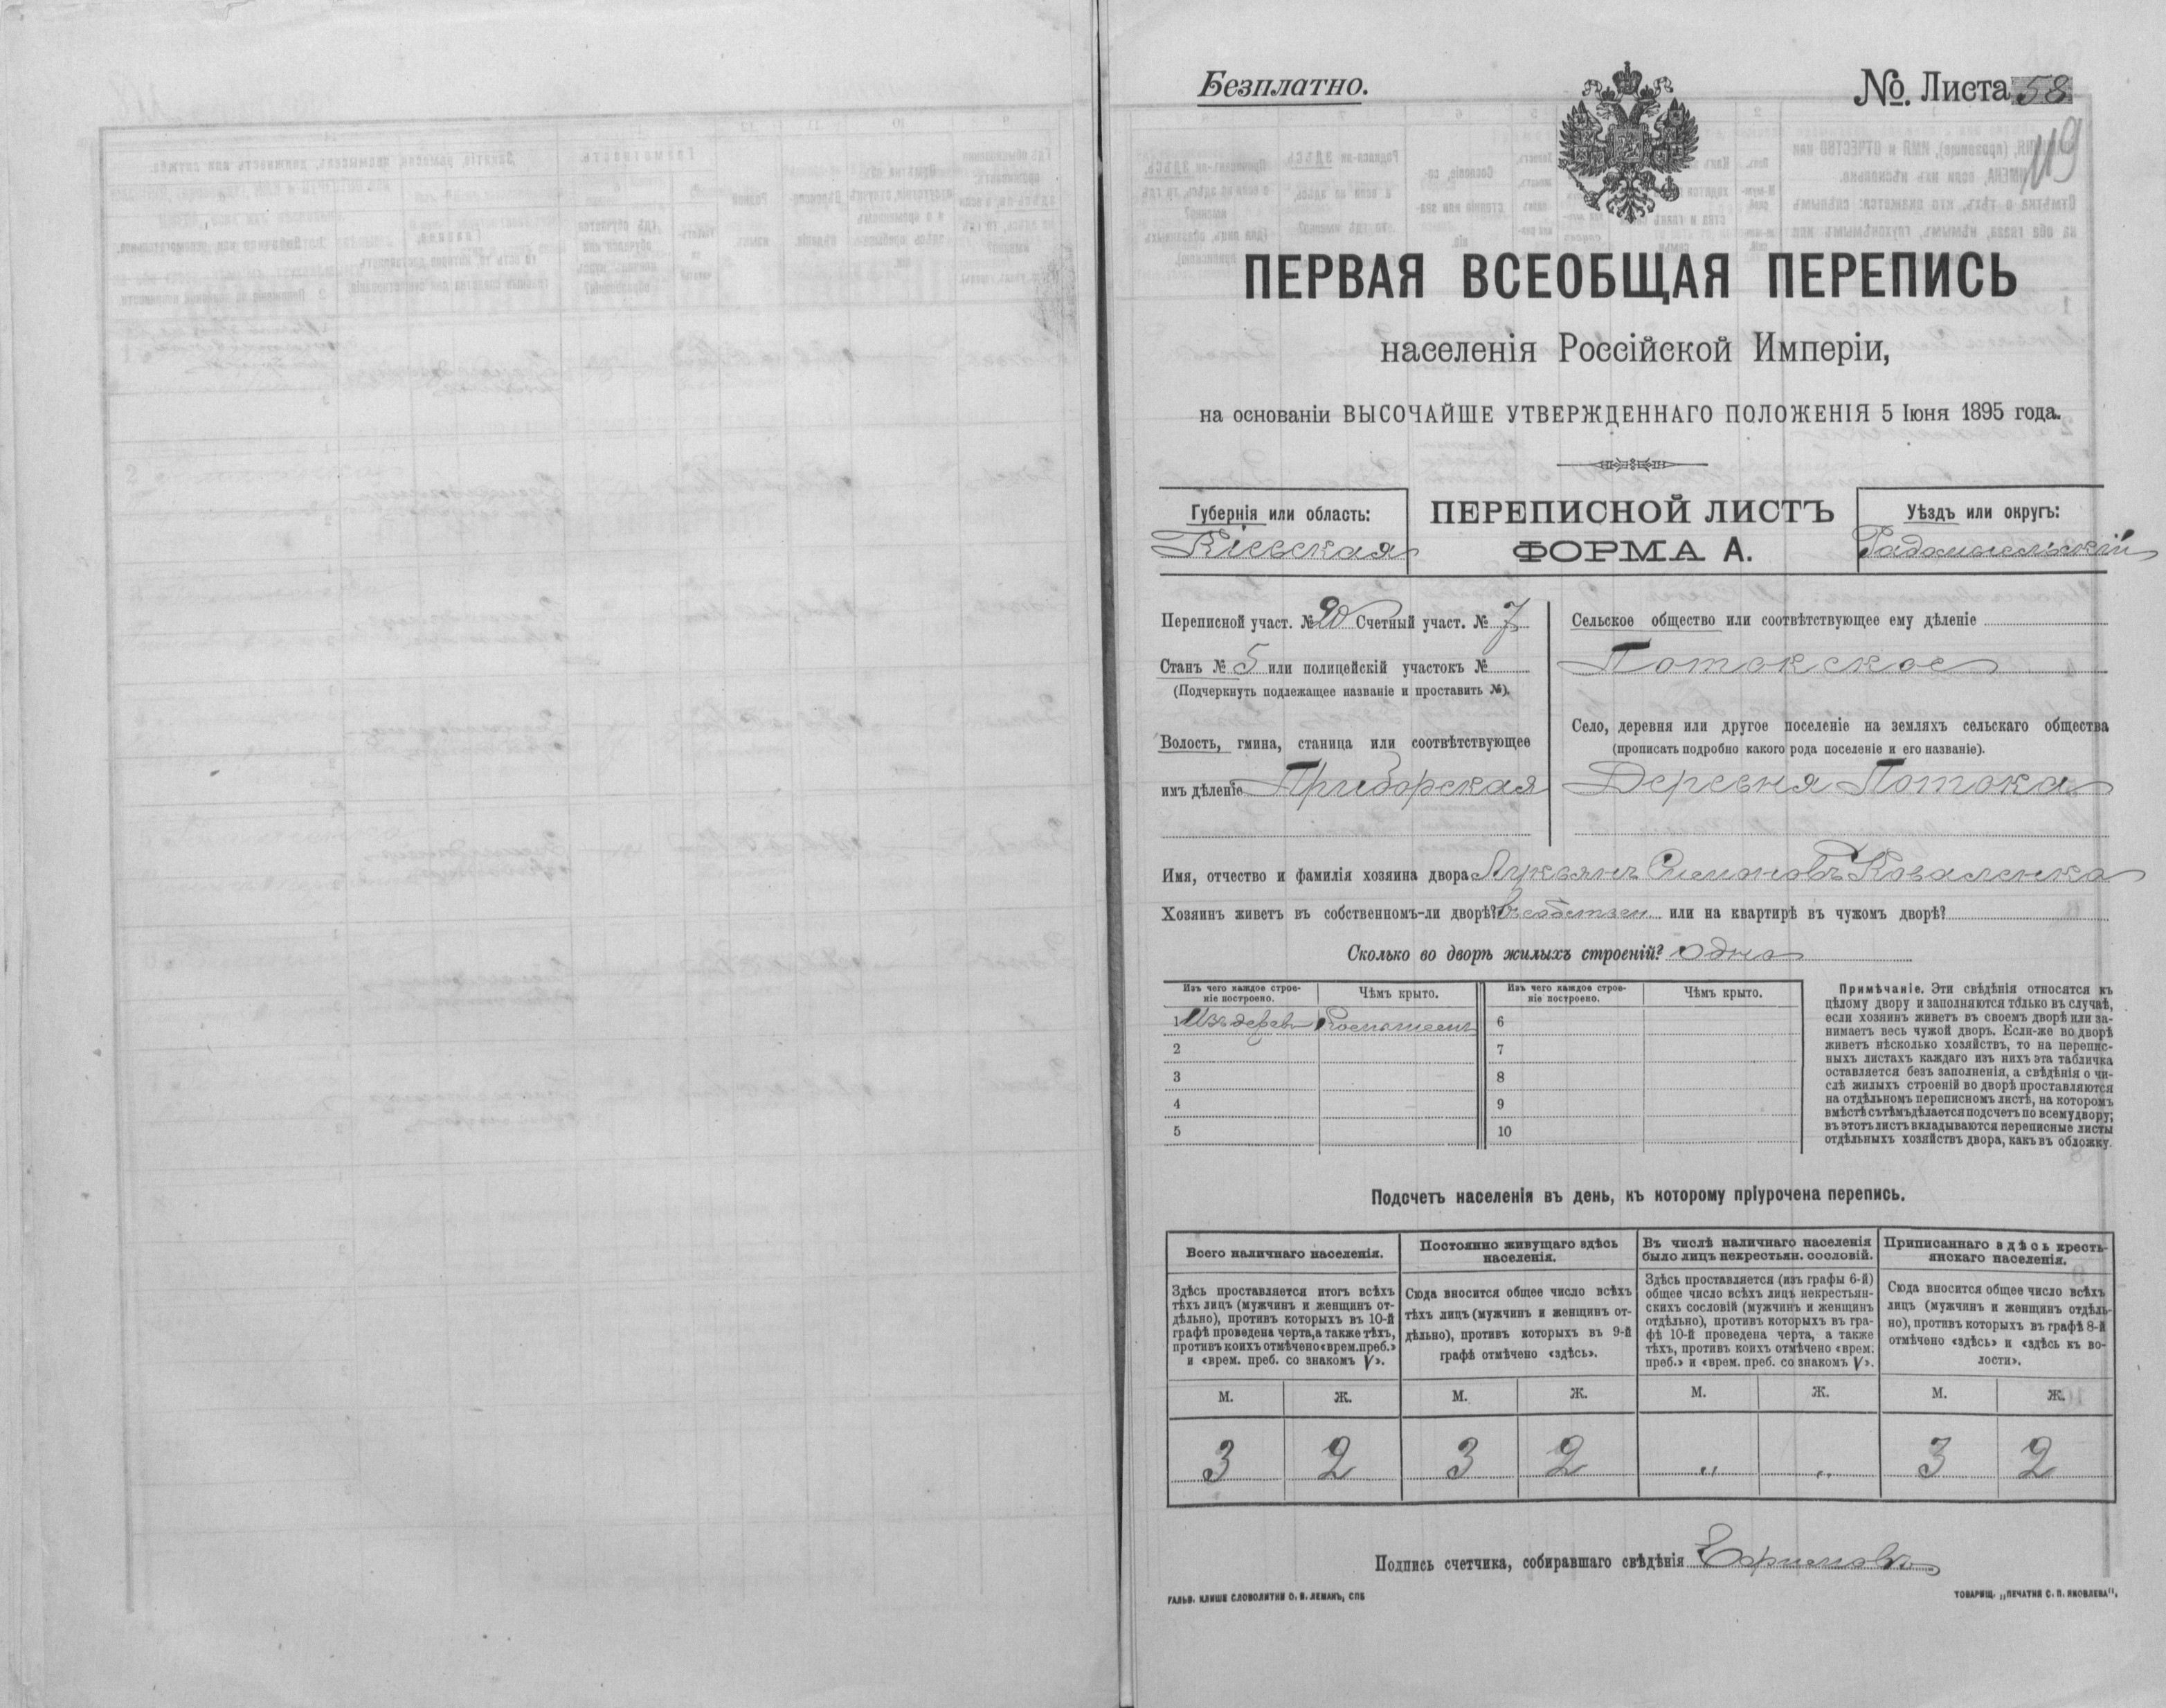 Безплатно.
№. Листа 58
119
ПЕРВАЯ ВСЕОБЩАЯ ПЕРЕПИСЬ
населенія Россійской Имперіи,
на основаніи ВЫСОЧАЙШЕ УТВЕРЖДЕННАГО ПОЛОЖЕНІЯ 5 Іюня 1895 года.
Губернія или область:
Кіевская
ПЕРЕПИСНОЙ ЛИСТЪ
ФОРМА А.
Уѣздъ или округъ:
Радомысльскій
Переписной участ. № 20 Счетный участ. № 7
Станъ № 5 или полицейскій участокъ №
(Подчеркнуть подлежащее названіе и проставить №).
Волость, гмина, станица или соотвѣтствующее
имъ дѣленіе Приборская
Сельское общество или соотвѣтствующее ему дѣленіе
Потокское
Село, деревня или другое поселеніе на земляхъ сельскаго общества
(прописать подробно какого рода поселеніе и его названіе).
Деревня Потока
Имя, отчество и фамилія хозяина двора Лукьянъ Симоновъ Коваленко
Хозяинъ живетъ въ собственномъ-ли дворѣ? Въ собствен. или на квартирѣ въ чужомъ дворѣ?
Сколько во дворѣ жилыхъ строеній? Одно
Изъ чего каждое строе-
ніе построено.
Чѣмъ крыто.
Изъ чего каждое строе-
ніе построено.
Чѣмъ крыто.
1 Изъ дерева 6
2 7
3 8
4 9
5 10
Примѣчаніе. Эти свѣдѣнія относятся къ
цѣлому двору и заполняются только въ случаѣ,
если хозяинъ живетъ въ своемъ дворѣ или за-
нимаетъ весь чужой дворъ. Если-же во дворѣ
живетъ нѣсколько хозяйствъ, то на перепис-
ныхъ листахъ каждаго изъ нихъ эта табличка
оставляется безъ заполненія, а свѣдѣнія о чи-
слѣ жилыхъ строеній во дворѣ проставляются
на отдѣльномъ переписномъ листѣ, на которомъ
вмѣстѣ съ тѣмъ дѣлается подсчетъ по всему двору;
въ этотъ листъ вкладываются переписные листы
отдѣльныхъ хозяйствъ двора, какъ въ обложку.
Подсчетъ населенія въ день, къ которому пріурочена перепись.
Всего наличнаго населенія.
Здѣсь проставляется итогъ всѣхъ
тѣхъ лицъ (мужчинъ и женщинъ от-
дѣльно), противъ которыхъ въ 10-й
графѣ проведена черта, а также тѣхъ,
противъ коихъ отмѣчено «врем. преб.»
и «врем. преб. со знакомъ V».
Постоянно живущаго здѣсь
населенія.
Сюда вносится общее число всѣхъ
тѣхъ лицъ (мужчинъ и женщинъ от-
дѣльно), противъ которыхъ въ 9-й
графѣ отмѣчено «здѣсь».
Въ числѣ наличнаго населенія
было лицъ некрестьян. сословій.
Здѣсь проставляется (изъ графы 6-й)
общее число всѣхъ лицъ некрестьян-
скихъ сословій (мужчинъ и женщинъ
отдѣльно), противъ которыхъ въ гра-
фѣ 10-й проведена черта, а также
тѣхъ, противъ коихъ отмѣчено «врем.
преб.» и «врем. преб. со знакомъ V».
Приписаннаго здѣсь кресть-
янскаго населенія.
Сюда вносится общее число всѣхъ
лицъ (мужчинъ и женщинъ отдѣль-
но), противъ которыхъ въ графѣ 8-й
отмѣчено «здѣсь» и «здѣсь къ во-
лости».
М. Ж. М. Ж. М. Ж. М. Ж.
3 2 3 2 „ „ 3 2
Подпись счетчика, собиравшаго свѣдѣнія Ефимовъ
ГАЛЬВ. КЛИШЕ СЛОВОЛИТНИ О. И. ЛЕМАНЪ, СПБ
ТОВАРИЩ. „ПЕЧАТНЯ С. П. ЯКОВЛЕВА".